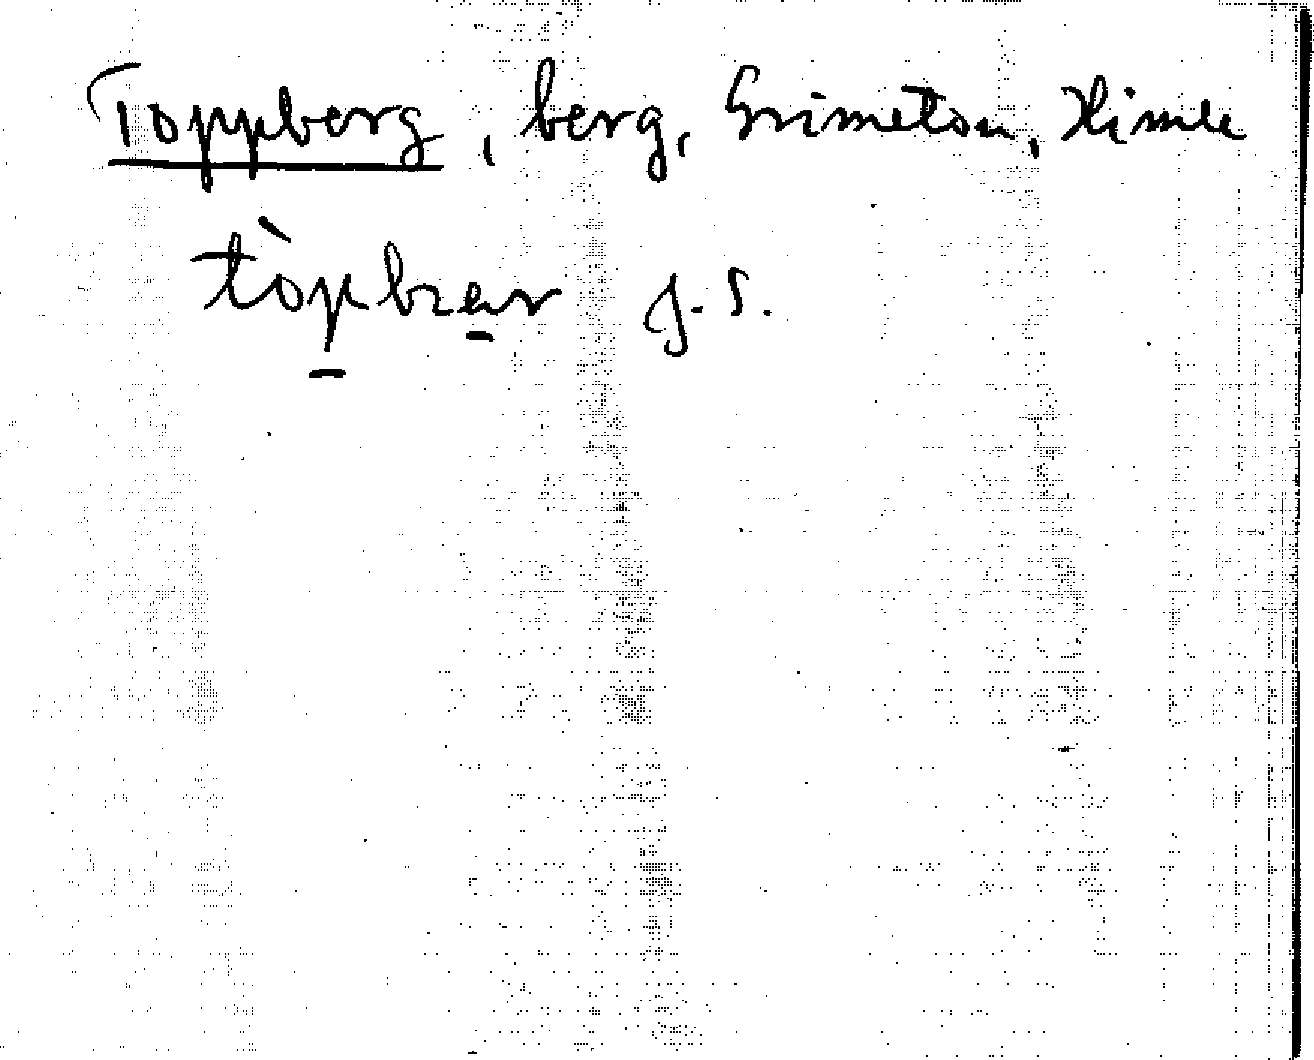 Toppberg, berg, Grimeton, Himle
tòpbær J. S.